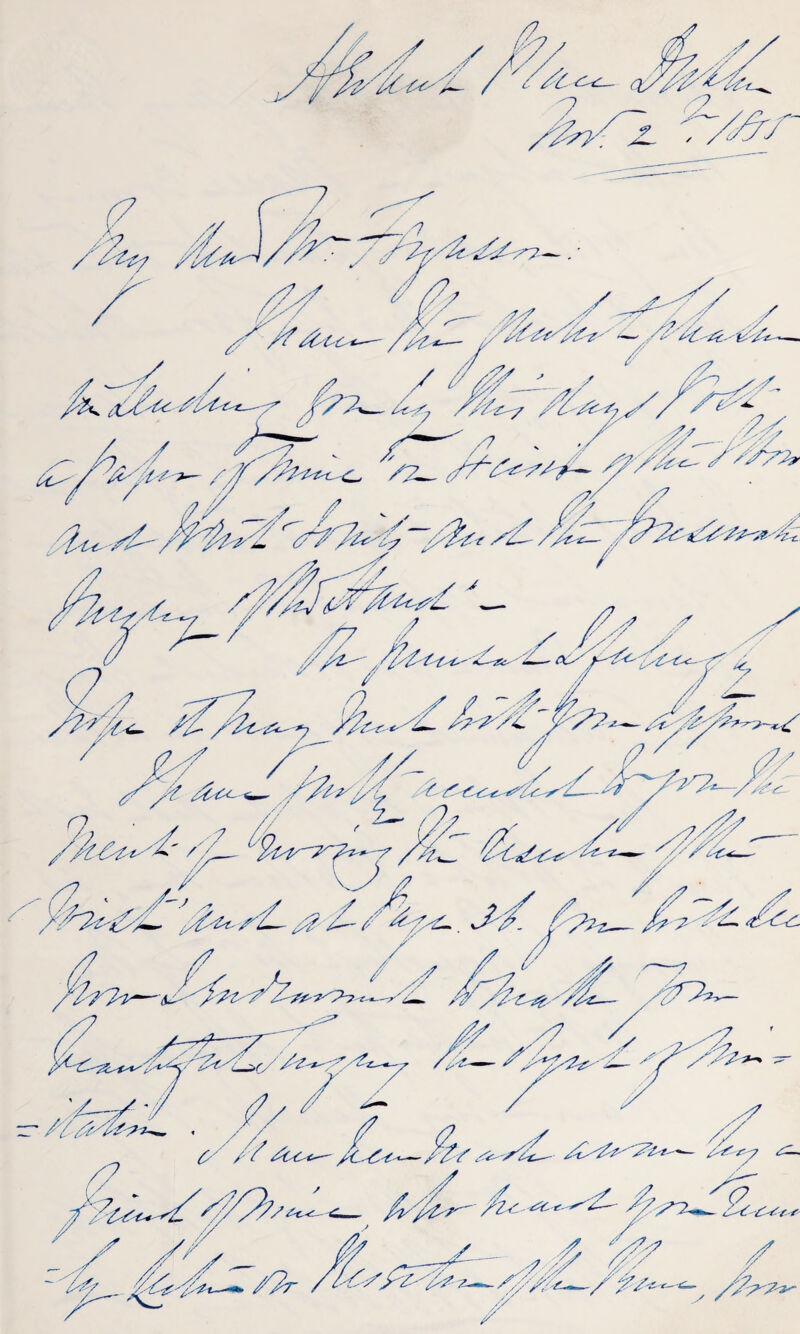 Herbert Place Dublin
Nov. 2d. 1855
My dear Mr. Fergusson:
I have the greatest pleasure
in sending you by this days Post
a paper of mine "on Excision of the Elbow
and Wrist Joints and the preservative
Surgery of the Hand" -
On perusal I feelingly
hope it may meet with your approval
I have justly accorded to you the
merit of reviving the resection of the
'Wrist' and at Page. 36. you will see
how I endeavoured to make your
beautiful Surgery the object of im=
=itation. I have been made aware by a
friend of mine, who heard your recent
=ly lecture on Resection of the Knee, how